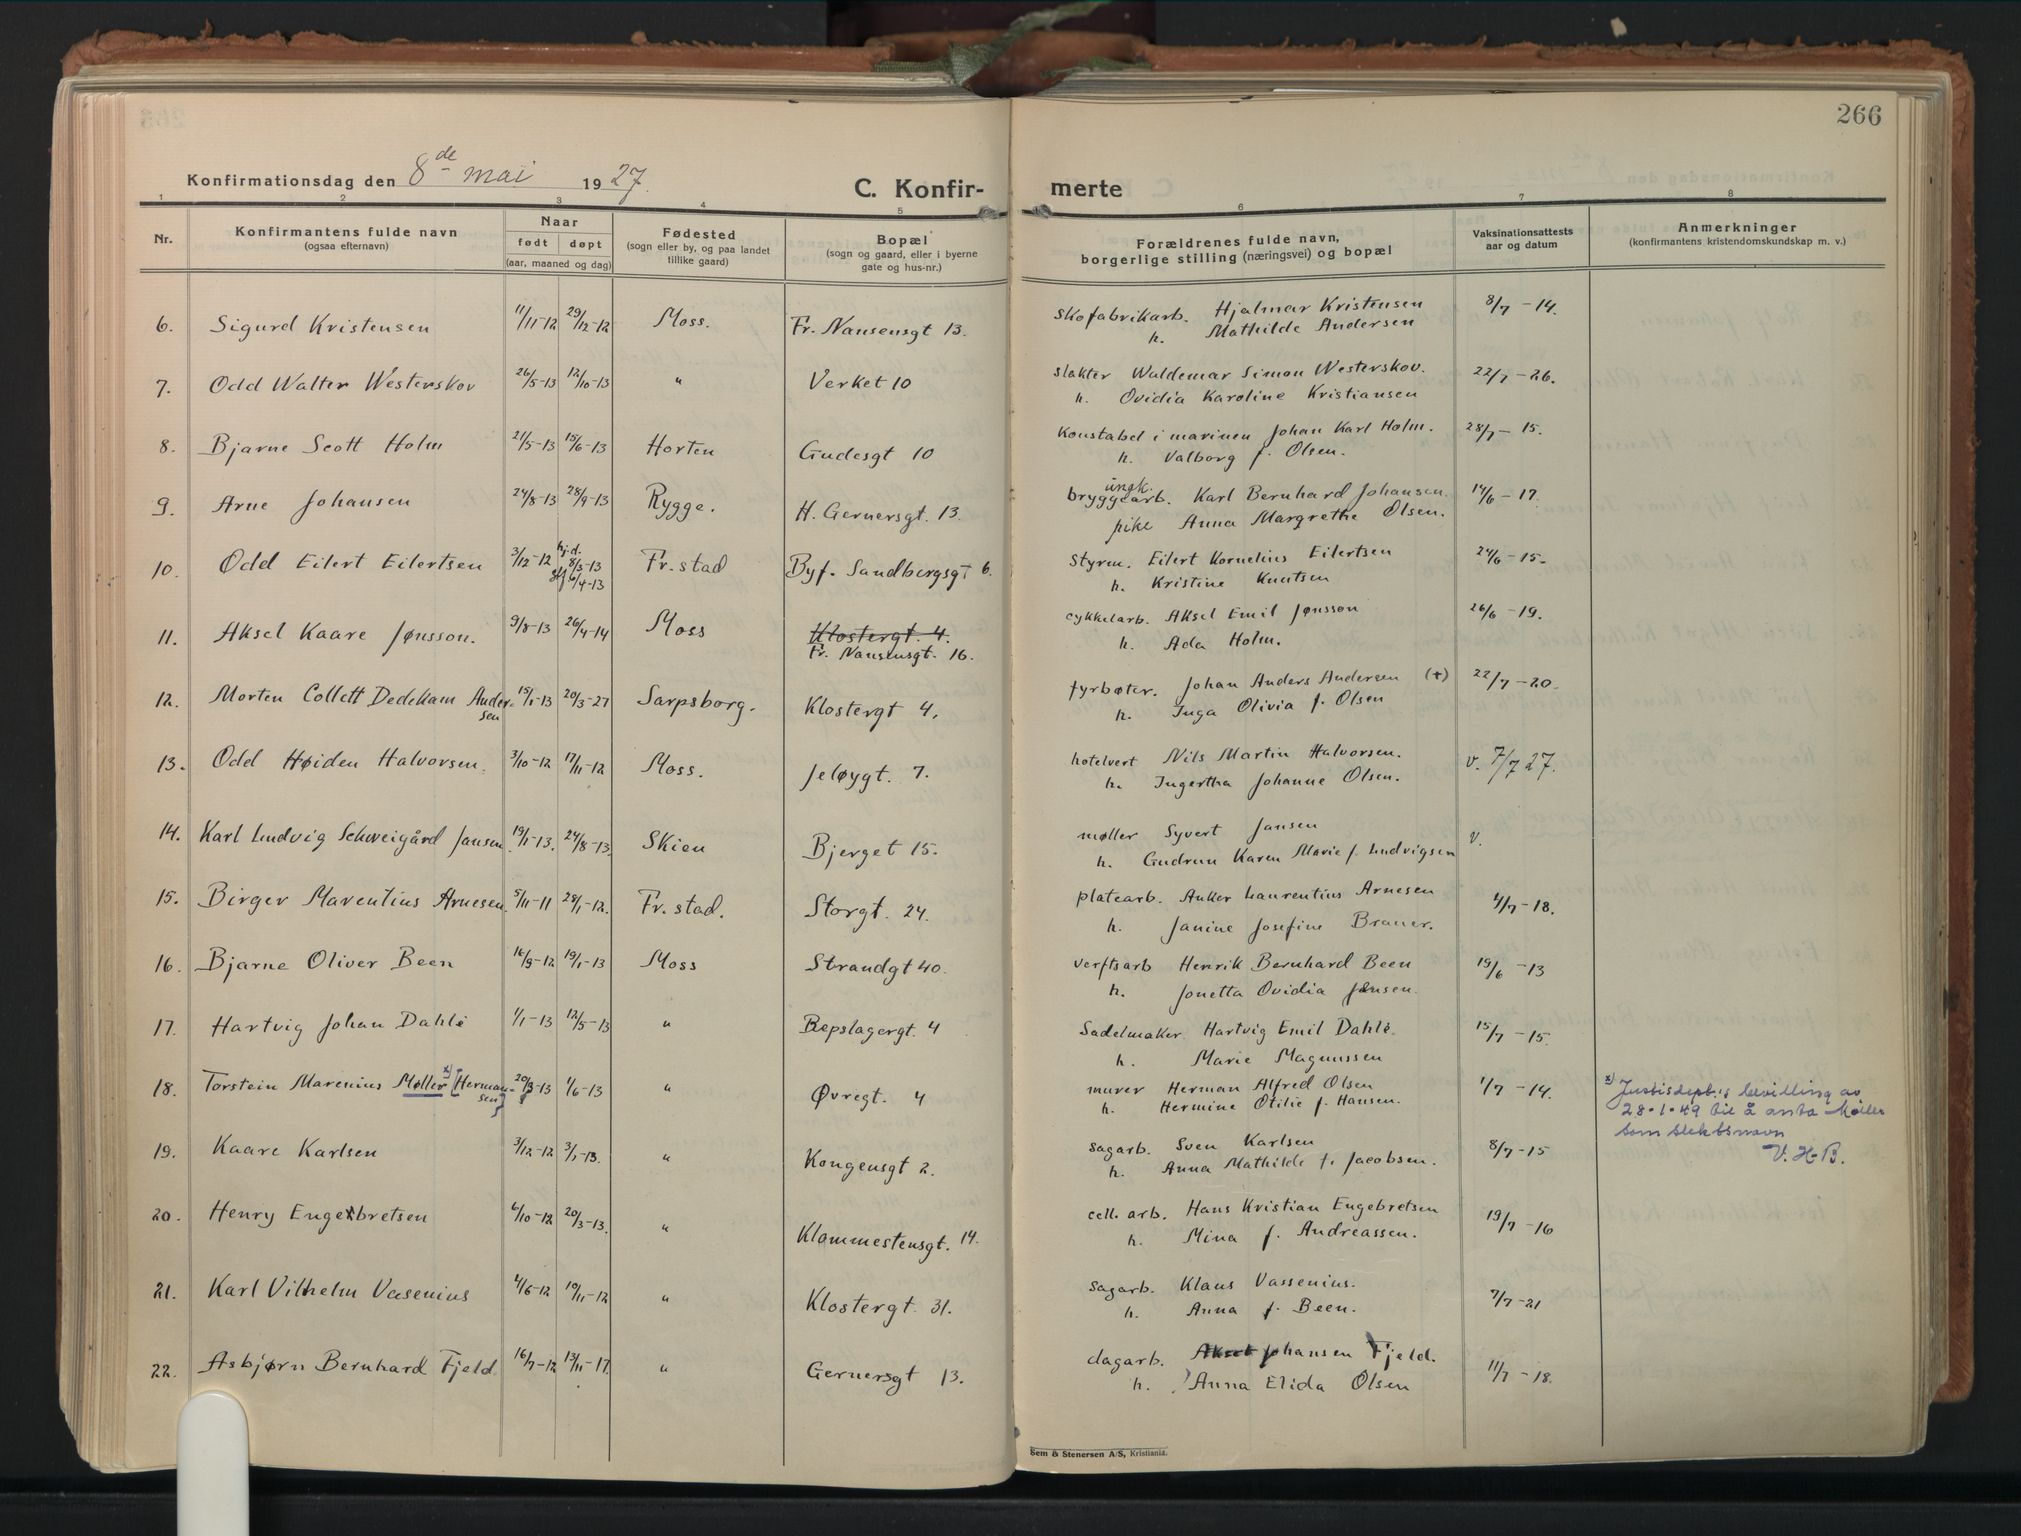 266
Konfirmationsdag den 8de mai 1927.
C. Konfirmerte
1 2 3 4 5 6 7 8
Nr.
Konfirmantens fulde navn
(ogsaa efternavn)
Naar
født døpt
(aar, maaned og dag)
Fødested
(sogn eller by, og paa landet
tillike gaard)
Bopæl
(sogn og gaard, eller i byerne
gate og hus-nr.)
Forældrenes fulde navn,
borgerlige stilling (næringsvei) og bopæl
Vaksinationsattests
aar og datum
Anmerkninger
(konfirmantens kristendomskundskap m. v.)
6. Sigurd Kristensen 11/11-12 29/12-12 Moss. Fr. Nansensgt 13. Skofabrikarb. Hjalmar Kristensen 8/7-14.
h. Mathilde Andersen
7. Odd Walter Westerskov 26/5-13 12/10-13 " Verket 10 Slakter Waldemar Simon Westerskov. 22/7-26.
h. Ovidia Karoline Kristiansen
8. Bjarne Scott Holm 21/5-13 15/6-13 Horten Gudesgt 10 Konstabel i marinen Johan Karl Holm. 28/7-15.
h. Valborg f. Olsen.
9. Arne Johansen 24/8-13 28/9-13 Rygge. H. Gernersgt. 13. ungk. bryggearb. Karl Bernhard Johansen. 14/6-17.
pike Anna Margrethe Olsen.
10. Odd Eilert Eilertsen 3/12-12 hj.d. 8/3-13 6/4-13 Fr.stad Byf. Sandbergsgt 6. Styrm. Eilert Kornelius Eilertsen 24/6-15.
h. Kristine Knutsen
11. Aksel Kaare Jønsson. 9/8-13 26/4-14 Moss Klostergt. 4. cykkelarb. Aksel Emil Jønsson 26/6-19.
Fr. Nansensgt. 16. h. Ada Holm.
12. Morten Collett Dedekam Andersen 15/1-13 20/3-27 Sarpsborg. Klostergt 4. fyrbøter. Johan Anders Andersen (+) 22/7-20.
h. Inga Olivia f. Olsen
13. Odd Høiden Halvorsen. 3/10-12 17/11-12 Moss. Jeløygt. 7. hotelvert Nils Martin Halvorsen. v. 7/7 27.
h. Ingertha Johanne Olsen.
14. Karl Ludvig Schweigård Jansen 19/1-13. 24/8-13. Skien Bjerget 15. møller Syvert Jansen v.
h. Gudrun Karen Marie f. Ludvigsen
15. Birger Marentius Arnesen. 5/11-11 28/1-12. Fr.stad. Storgt. 24. platearb. Anker Laurentius Arnesen 4/7-18.
h. Janine Josefine Brauer.
16. Bjarne Oliver Been 16/9-12 19/1-13 Moss Strandgt 40. verftsarb Henrik Bernhard Been 19/6-13
h. Jonetta Ovidia Jensen.
17. Hartvig Johan Dahle 1/1-13 12/5-13 " Repslagergt. 4 Sadelmaker Hartvig Emil Dahle. 15/7-15.
h. Marie Magnussen
18. Torstein Marenius Møller x) [Hermansen] 20/3-13 1/6-13 " Øvregt. 4 murer Herman Alfred Olsen 1/7-14. x) Justisdept:s bevilling av
h. Hermine Otilie f. Hansen. 28.1.49 til å anta Møller
som slektsnavn
V. H-B.
19. Kaare Karlsen 3/12-12 3/1-13. " Kongensgt 2. sagarb. Sven Karlsen 8/7-15
h. Anna Mathilde f. Jacobsen.
20. Henry Engebretsen 6/10-12 20/3-13. " Klommestensgt. 14. cell. arb. Hans Kristian Engebretsen 19/7-16
h. Mina f. Andreassen.
21. Karl Vilhelm Vasenius 4/6-12 10/11-12 " Klostergt. 31. Sagarb. Klaus Vassenius. 7/7-21
h. Anna f. Been.
22. Asbjørn Bernhard Fjeld. 16/7-12 13/11-17. " Gernersgt 13. dagarb. Johansen Fjeld. 11/7-18.
h. Anna Elida Olsen
Sem & Stenersen A/S, Kristiania.